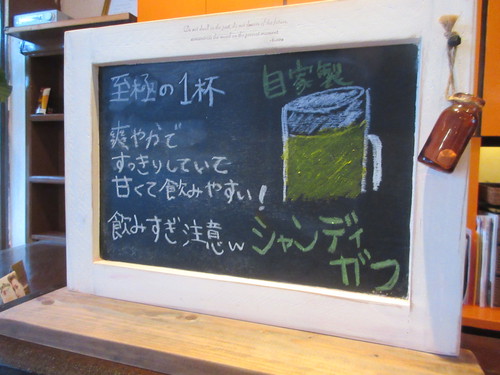 至極の1杯
爽やかで
すっきりしていて
甘くて飲みやすい!
飲みすぎ注意w
自家製
シャンディ
ガフ